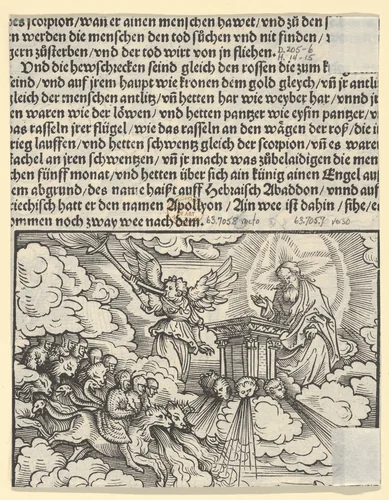 es scorpion/wan er ainen menschen hawet/vnd zů den
n werden die menschen den tod sůchen vnd nit finden/
gern zůsterben/vnd der tod wirt von jn fliehen.
D.205-6
H.14-15
Vnd die hewschrecken seind gleich den rossen die zum
eind/vnd auf jrem haupt wie kronen dem gold gleych/vñ jr antli
gleich der menschen antlitz/vñ hetten har wie weyber har/vnnd jr
en waren wie der löwen/vnd hetten pantzer wie eysin pantzer/v
as rasseln jrer flügel/wie das rasseln an den wägen der roß/die i
rieg lauffen/vnd hetten schwentz gleich der scorpion/vñ es waren
tachel an jren schwentzen/vñ jr macht was zůbelaidigen die men
chen fünff monat/vnd hetten über sich ain künig ainen Engel auß
em abgrund/des name haißt auff Hebraisch Abaddon/vnnd auff
riechisch hatt er den namen Apollyon/Ain wee ist dahin/sihe/e
ommet noch zway wee nach dem.
63.705.8 recto 63.705.7 verso